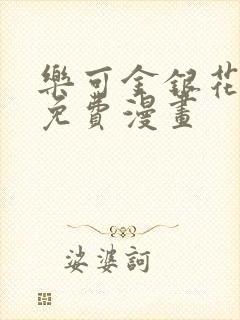 樂可金銀花
免費漫畫
娑婆訶